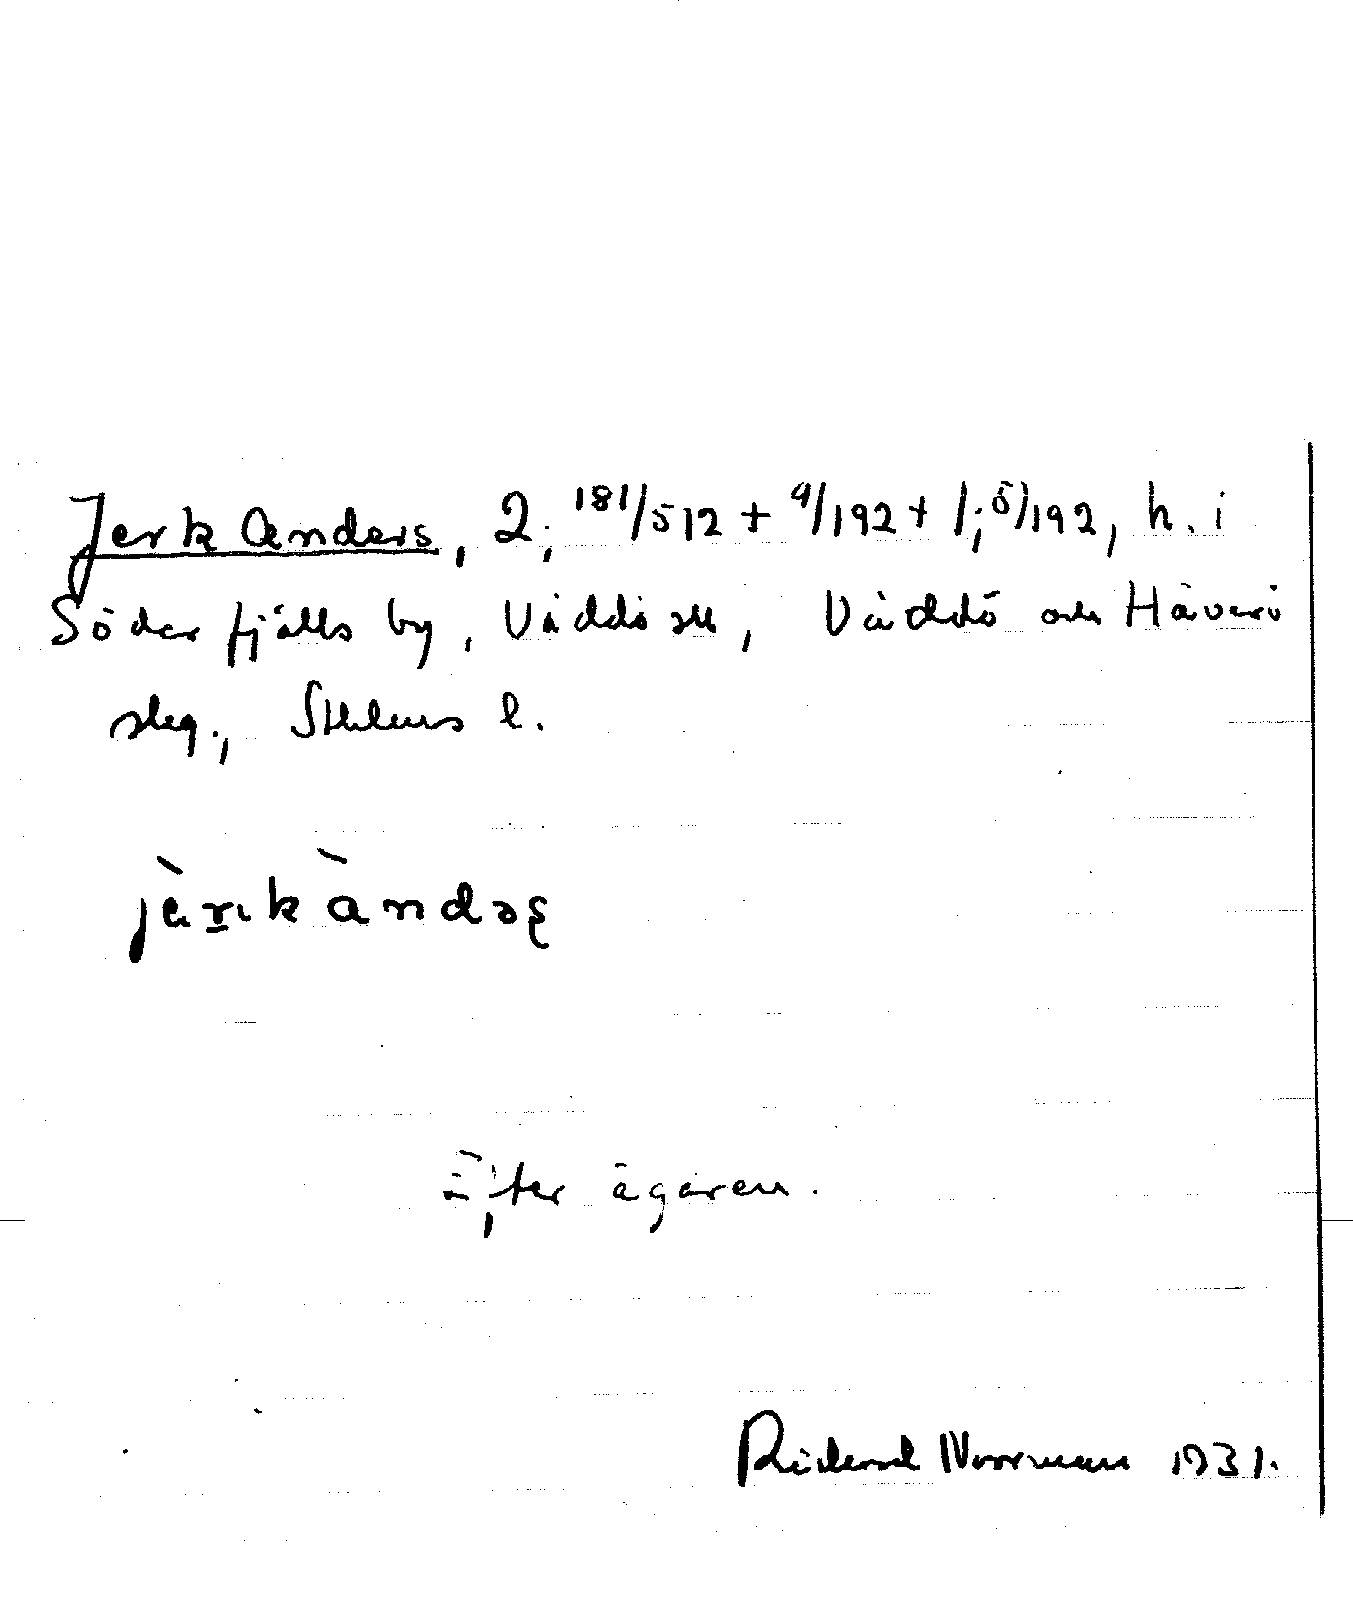 Jerk Anders, 2; 181/512 + 9/192 + 1; 5/192, h. i
Söderfjälls by, Väddö sn, Väddö och Häverö
slg., Sthlms l.
jèrık àndəʂ
Efter ägaren.
Rickard Norrman 1931.